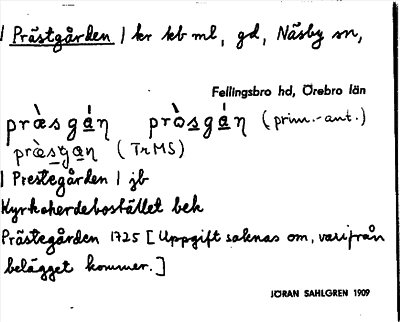 | Prästgården | kr kb ml, gd, Näsby sn,
Fellingsbro hd, Örebro län
prà̀sgá̀n prà̀sgá̀n (prim.-ant.)
præsgan (TrMS)
| Prestegården | jb
Kyrkoherdebostället bek
Prästegården 1725 [Uppgift saknas om, varifrån
belägget kommer.]
JÖRAN SAHLGREN 1909